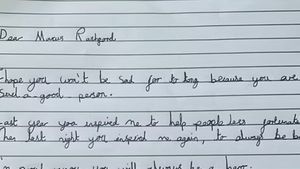 Dear Marcus Rashford
I hope you won't be sad for to long because you are
such a good person.
Last year you inspired me to help people less fortunate
then last night you inspired me again, to always be b
you will always be a hero.